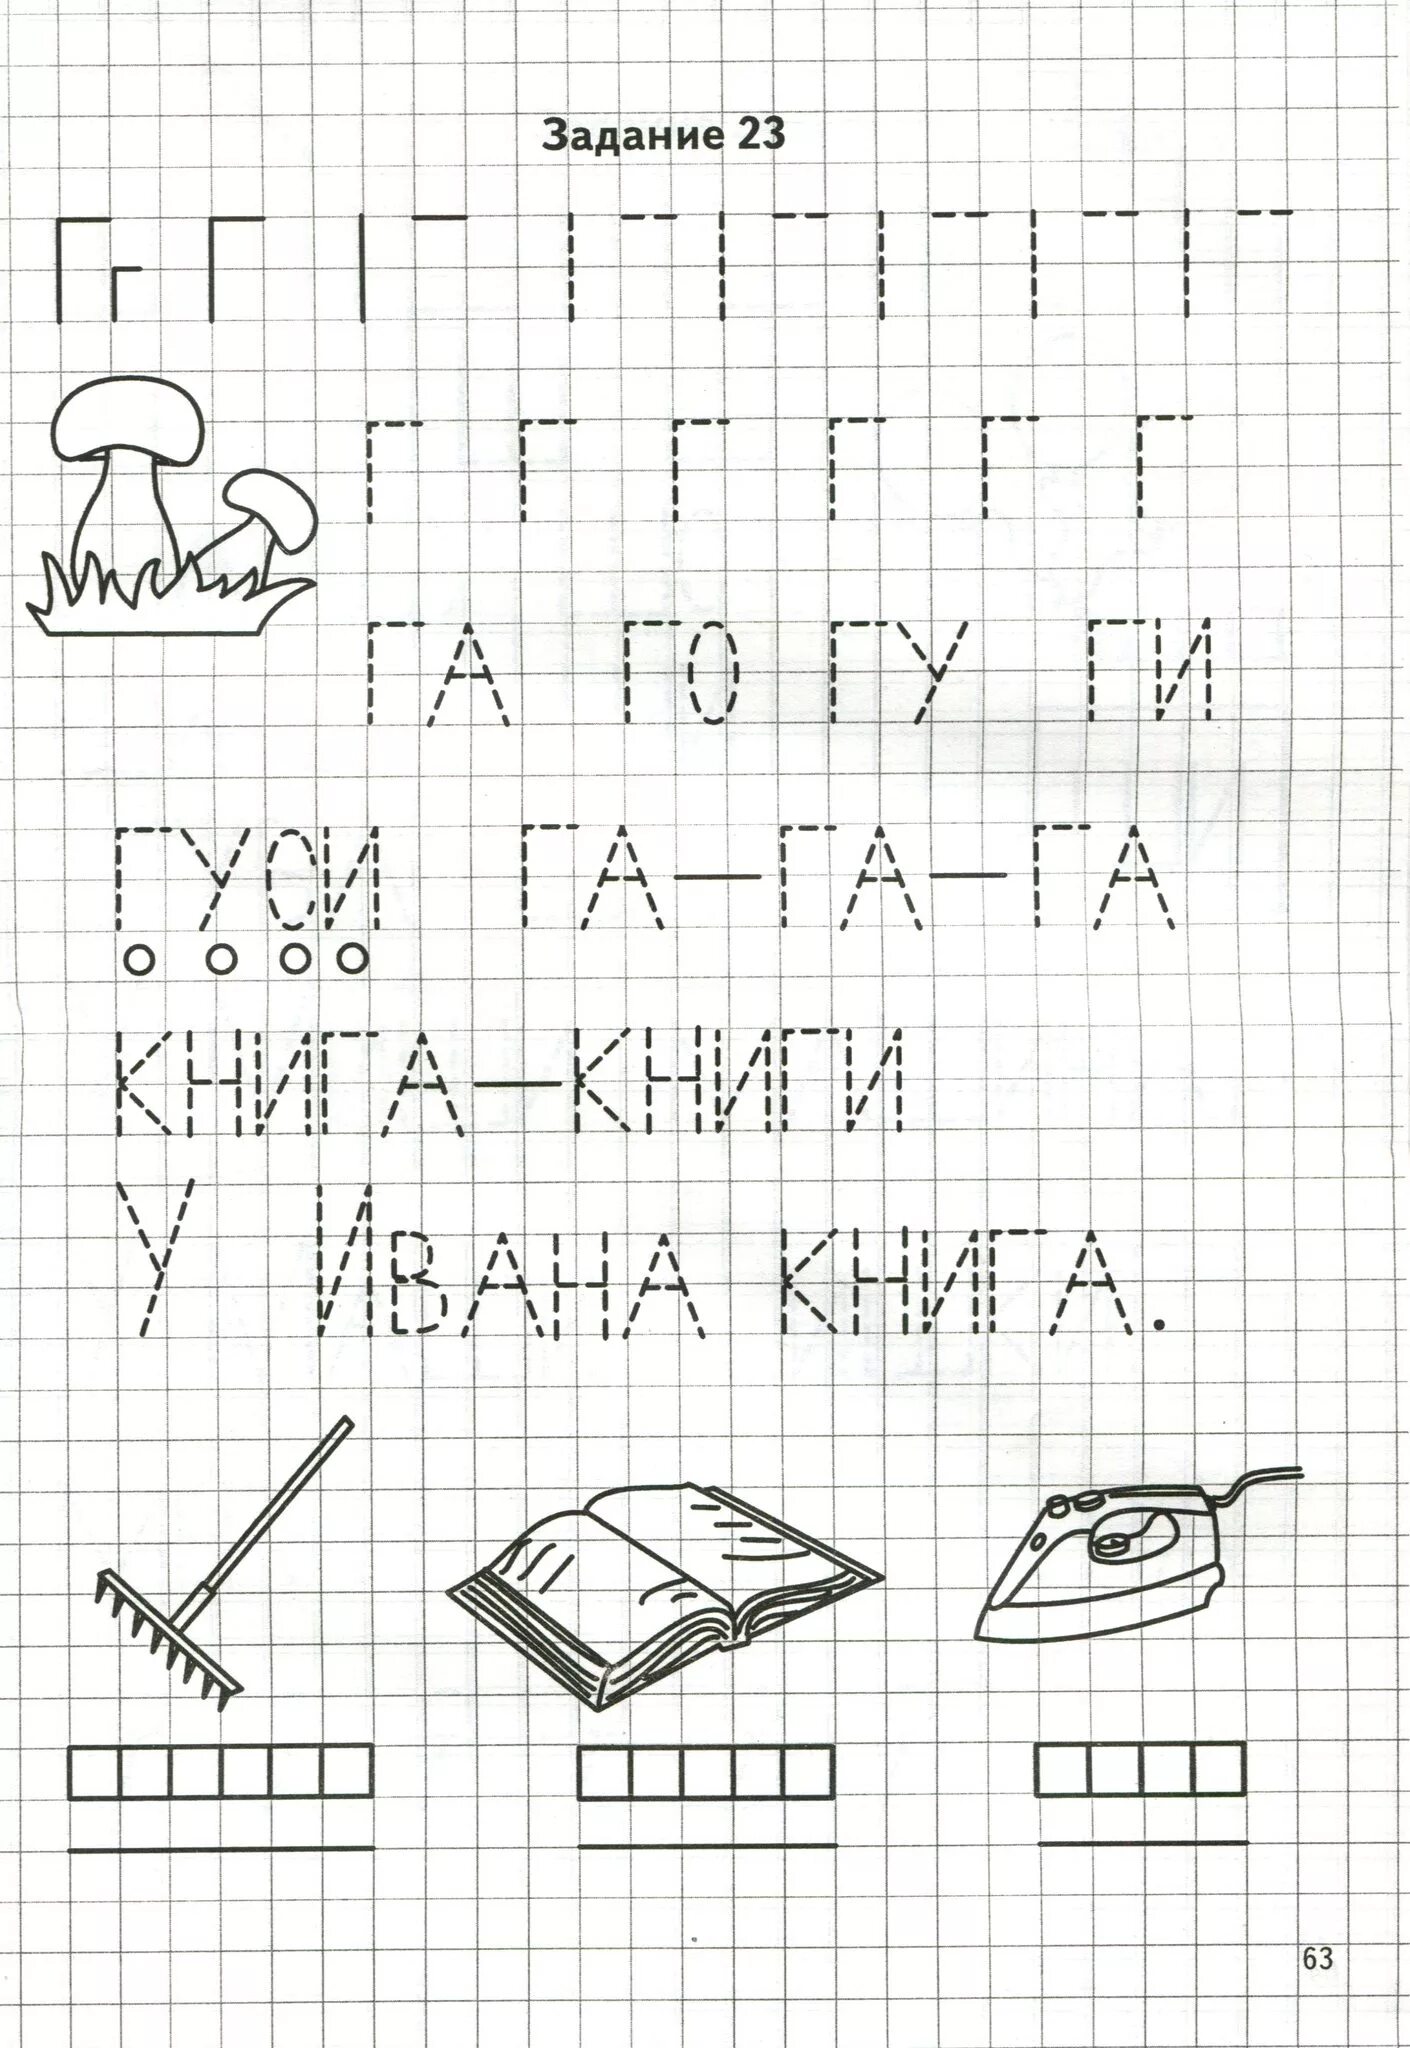 Задание 23
Гг Г
Г Г Г Г Г Г
ГА ГО ГУ ГИ
ГУСИ ГА—ГА—ГА
КНИГА—КНИГИ
У ИВАНА КНИГА.
63